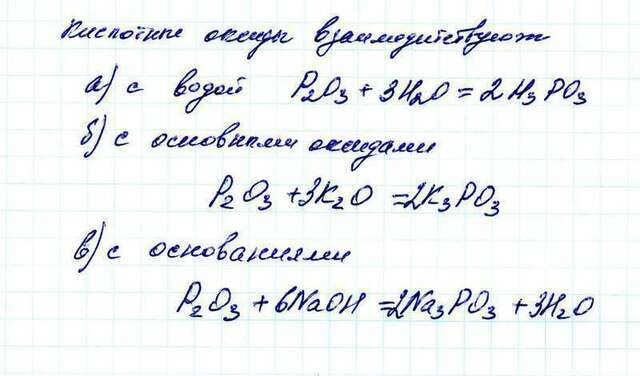 Кислотные оксиды взаимодействуют
а) с водой P₂O₃ + 3H₂O = 2H₃PO₃
б) с основными оксидами
P₂O₃ + 3K₂O = 2K₃PO₃
в) с основаниями
P₂O₃ + 6NaOH = 2Na₃PO₃ + 3H₂O